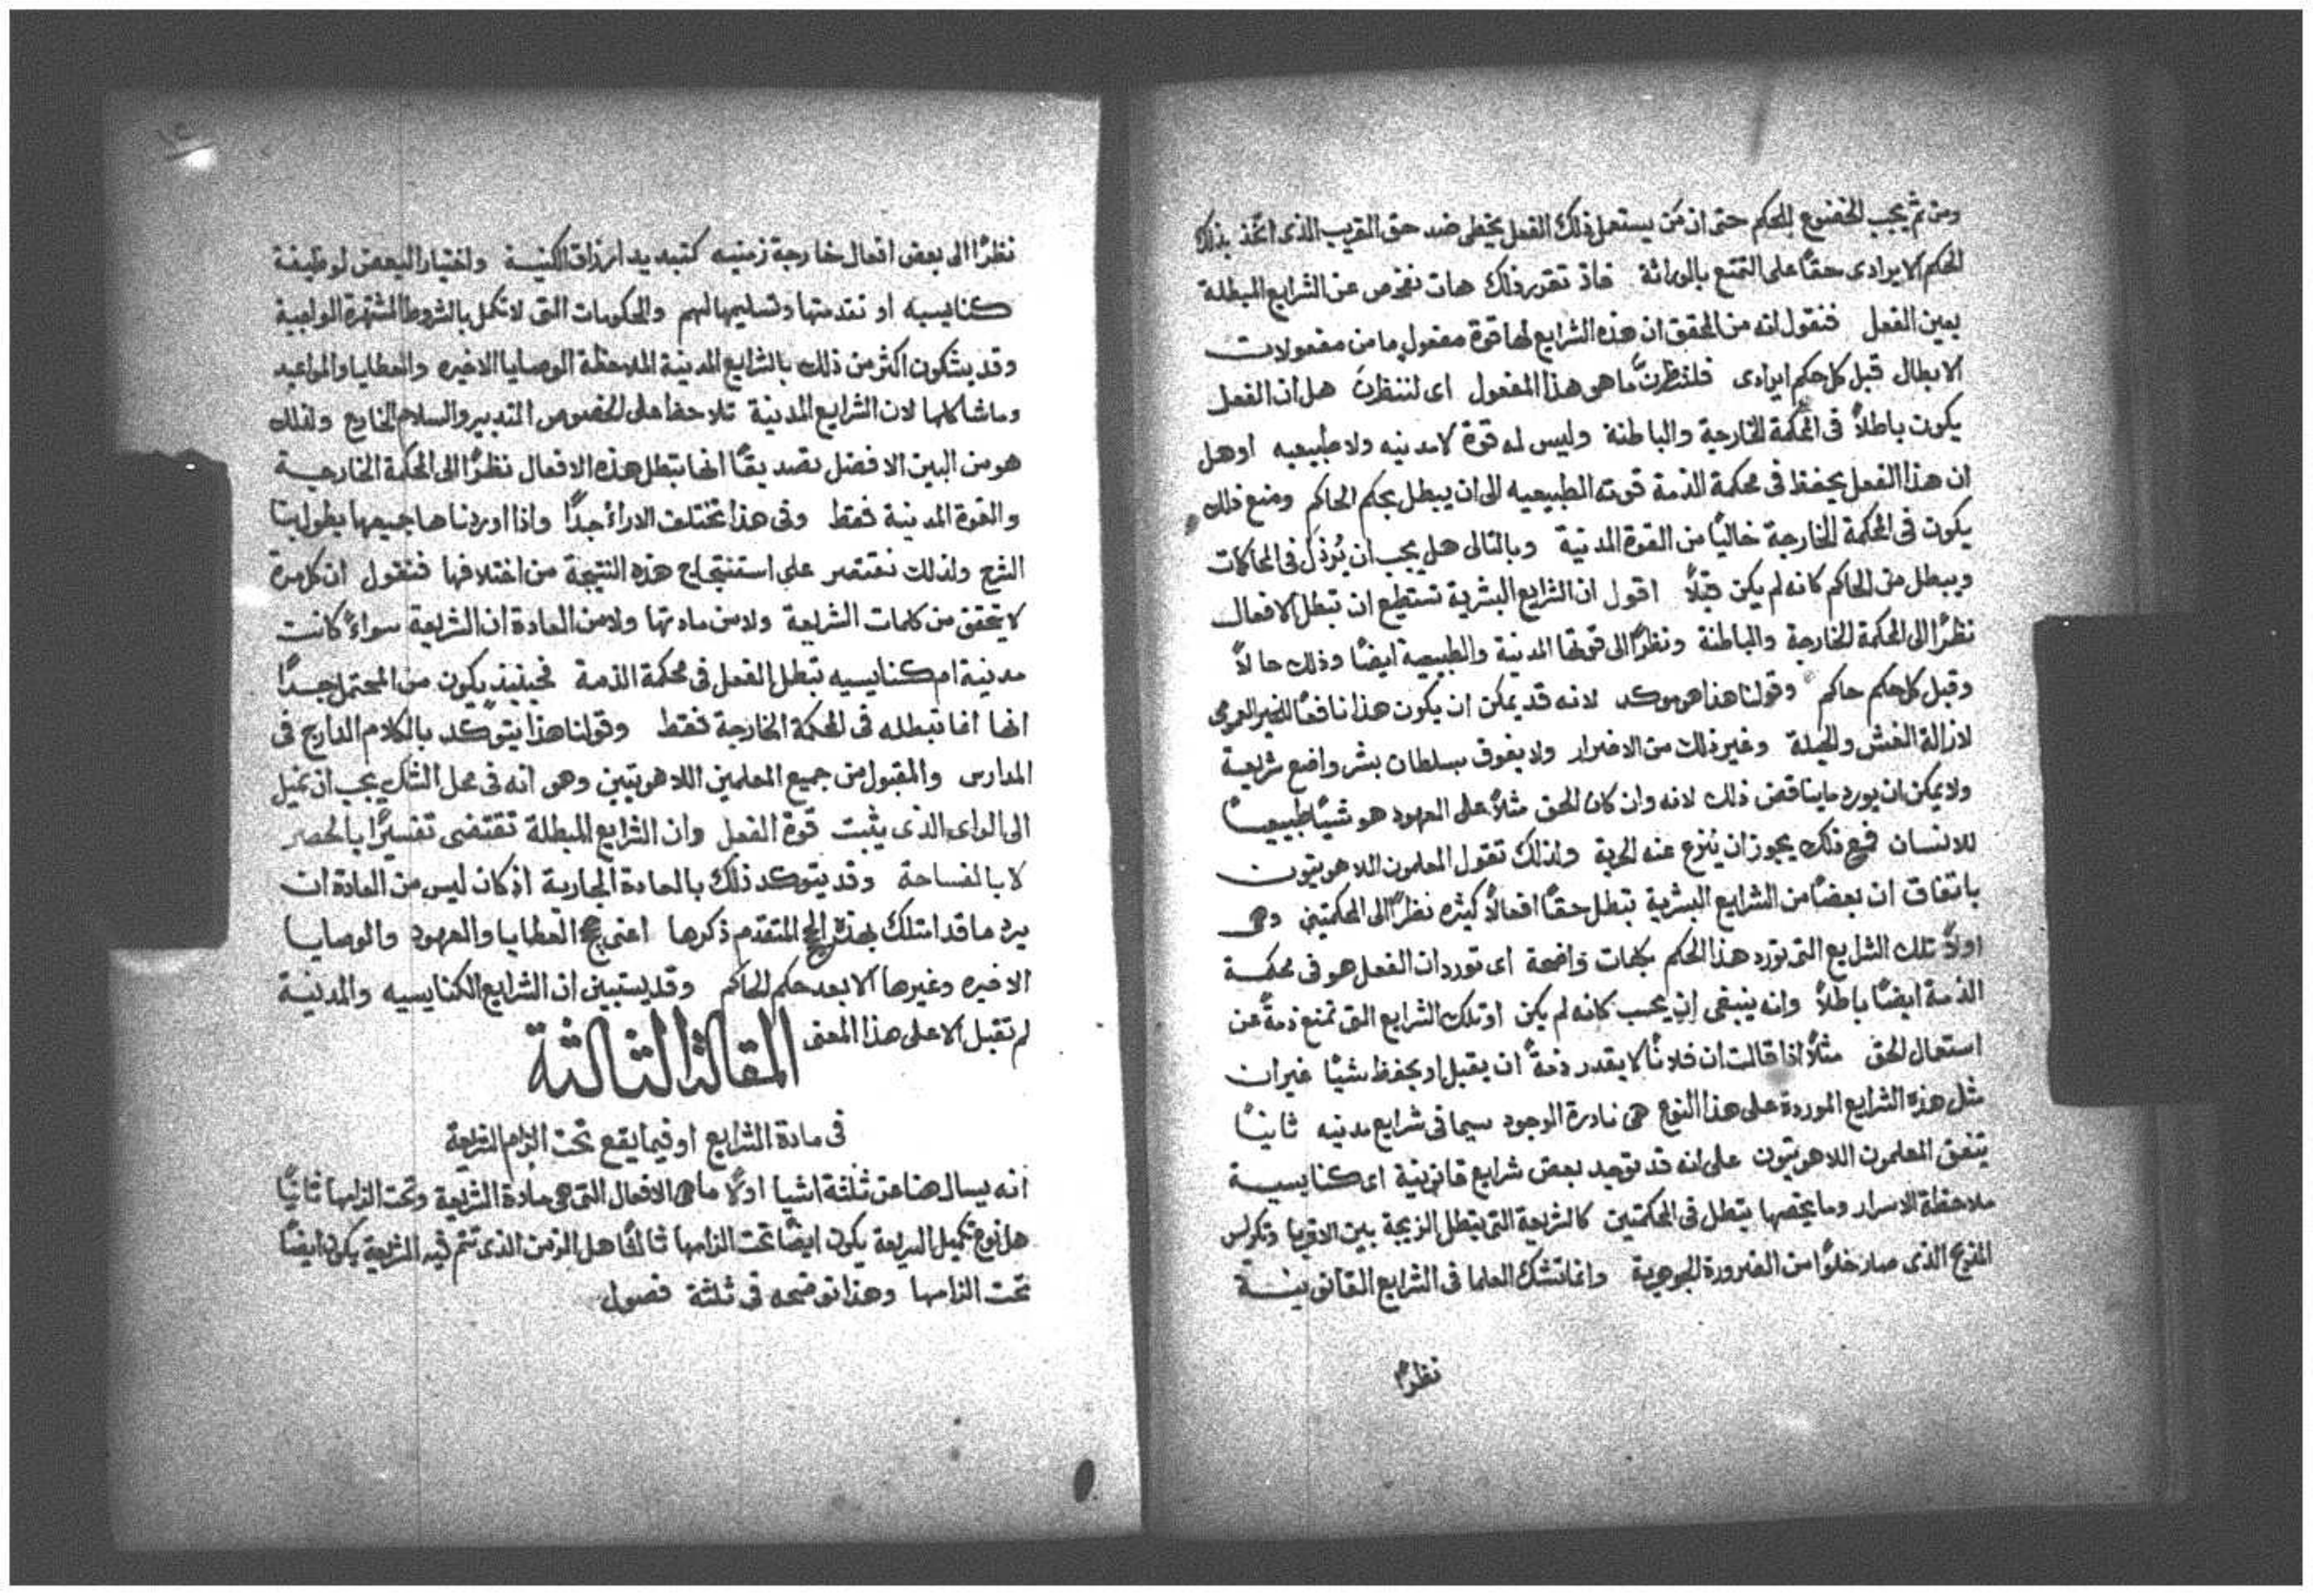 ومن ثم يجب الخضوع للحكم حتى ان من يستعمل ذلك الفعل يخطى ضد حق القريب الذى اتخذ بذلك
الحكم الايرادى حقًا على التمتع بالوراثة فاذ تقرر ذلك هات نفحص عن الشرايع المبطلة
بعين الفعل فنقول انه من المحقق ان هذه الشرايع لها قوة مفعول ما من مفعولات
الابطال قبل كل حكم ايرادى فلننظرنَّ ما هو هذا المفعول اى لننظرنَ هل ان الفعل
يكون باطلاً فى المحكمة الخارجة والباطنة وليس له قوة لا مدنيه ولا طبيعيه اوهل
ان هذا الفعل يحفظ فى محكمة الذمة قوته الطبيعيه الى ان يبطل بحكم الحاكم ومنع ذلك
يكون فى المحكمة الخارجة خاليًا من القوة المدنية وبالتالى هل يجب ان يُرذل فى المحاكمات
ويبطل من الحاكم كانه لم يكن قبلاً اقول ان الشرايع البشرية تستطيع ان تبطل الافعال
نظرًا الى المحكمة الخارجة والباطنة ونظرًا الى قوتها المدنية والطبيعية ايضًا وذلك حالاً
وقبل كل حكم حاكم وقولنا هذا هو موكد لانه قد يمكن ان يكون هذا نافعًا للخير العمومى
لازالة الغش والحيلة وغير ذلك من الاضرار ولا يفوق سلطان بشر واضع شريعة
ولا يمكن ان يورد ما يناقض ذلك لانه وان كان الحق مثلاً على العهود هو شيًا طبيعيًا
للانسان فمع ذلك يجوز ان يُنزع عنه الحرية ولذلك تقول المعلمون اللاهوتيون
باتفاق ان بعضًا من الشرايع البشرية تبطل حقًا افعالاً كثيره نظرًا الى المحكمتين وهى
اولاً تلك الشرايع التى تورد هذا الحكم بكلمات واضحة اى تورد ان الفعل هو فى محكمة
الذمة ايضًا باطلاً وانه ينبغى ان يحسب كانه لم يكن او تلك الشرايع التى تمنع ذمةً عن
استعمال الحق مثلاً اذا قالت ان فلانًا لا يقدر ذمةً ان يقبل او يحفظ شيًا غير ان
مثل هذه الشرايع الموردة على هذا النوع هى نادرة الوجود سيما فى شرايع مدنيه ثانيًا
يتفق المعلمون اللاهوتيون على انه قد توجد بعض شرايع قانونية اى كنايسية
ملاحظة الاسرار وما يخصها تبطل فى المحكمتين كالشريعة التى تبطل الزيجة بين الاقربا وتكرس
المنوع الذى صار خلوًا من الضرورة الجوهرية وانما تشك العلما فى الشرايع القانونية
نظرًا
نظرًا الى بعض افعال خارجة زمنيه كتبديد ارزاق الكنيسة واختيار البعض لوظيفة
كنايسيه او تقدمتها وتسليمها لهم والحكومات التى لا تكمل بالشروط المشتهرة الواجبة
وقد يشكون اكثر من ذلك بالشرايع المدنية الملاحظة الوصايا الاخيره والعطايا والمواعيد
وما شاكلها لان الشرايع المدنية تلاحظ على الخصوص التدبير والسلام الخارج ولذلك
هو من البين الافضل تصديقًا انها تبطل هذه الافعال نظرًا الى المحكمة الخارجية
والقوة المدنية فقط وفى هذا تختلف الاراء جدًا واذا اوردناها جميعها يطول بنا
الشرح ولذلك نقتصر على استنتاج هذه النتيجة من اختلافها فنقول ان كل مرة
لا يتحقق من كلمات الشريعة ولا من مادتها ولا من العادة ان الشريعة سواءً كانت
مدنية ام كنايسيه تبطل الفعل فى محكمة الذمة فحينيذ يكون من المحتمل جدًا
انها انما تبطله فى المحكمة الخارجة فقط وقولنا هذا يتوكد بالكلام الدارج فى
المدارس والمقبول من جميع المعلمين اللاهوتيين وهو انه فى محل الشك يجب ان نميل
الى الراى الذى يثبت قوة الفعل وان الشرايع المبطلة تقتضى تفسيرًا بالحصر
لا بالفساحة وقد يتوكد ذلك بالعادة الجارية اذ كان ليس من العادة ان
يرد ما قد امتلك بهذه الحجج المتقدم ذكرها اعنى حجج العطايا والعهود والوصايا
الاخيره وغيرها الا بعد حكم الحاكم وقد يستبين ان الشرايع الكنايسيه والمدنية
لم تقبل الا على هذا المعنى
المقالة الثالثة
فى مادة الشرايع او فيما يقع تحت الزام الشريعة
انه يسال هنا عن ثلثة اشيا اولاً ما هى الافعال التى هى مادة الشريعة وتحت الزامها ثانيًا
هل نوع تكميل الشريعة يكون ايضًا تحت الزامها ثالثًا هل الزمن الذى تتم فيه الشريعة يكون ايضًا
تحت الزامها وهذا نوضحه فى ثلثة فصول